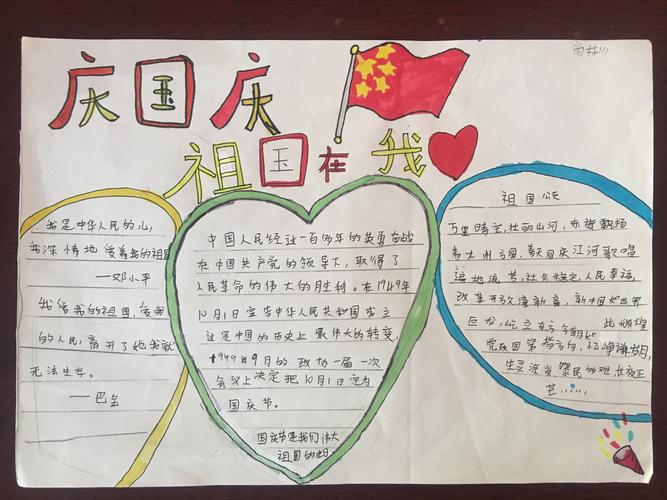 庆国庆
祖国在我
我是中华人民的儿,
我深情地爱着我的祖国
——邓小平
我爱我的祖国,爱我
的人民,离开了她我就
无法生存。
——巴金
中国人民经过一百多年的英勇奋战
在中国共产党的领导下,取得了
人民革命的伟大的胜利。在1949年
10月1日宣告中华人民共和国成立
这是中国的历史上最伟大的转变,
1949年9月的政协一届一次
会议上决定把10月1日定为
国庆节。
国庆节是我们伟大
祖国的
祖国颂
万里晴空,壮丽山河,赤旗飘扬
江河歌唱
社会稳定,人民幸福,
改革开放谱新章,新中国如
巨龙,屹立东方
党政国策指方向,
生灵涂炭,